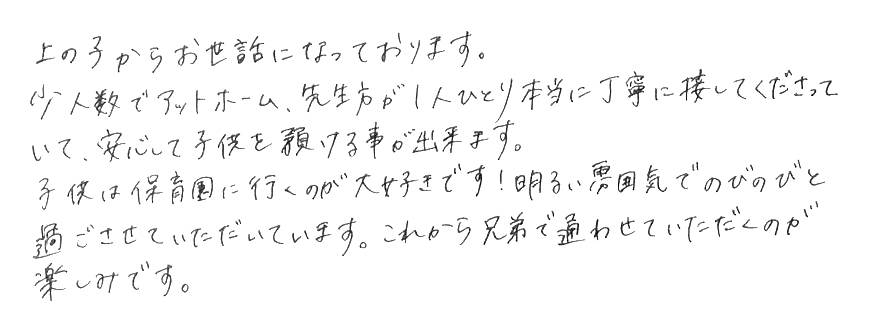 上の子からお世話になっております。
少人数でアットホーム、先生方が1人ひとり本当に丁寧に接してくださって
いて、安心して子供を預ける事が出来ます。
子供は保育園に行くのが大好きです!明るい雰囲気でのびのびと
過ごさせていただいています。これから兄弟で通わせていただくのが
楽しみです。